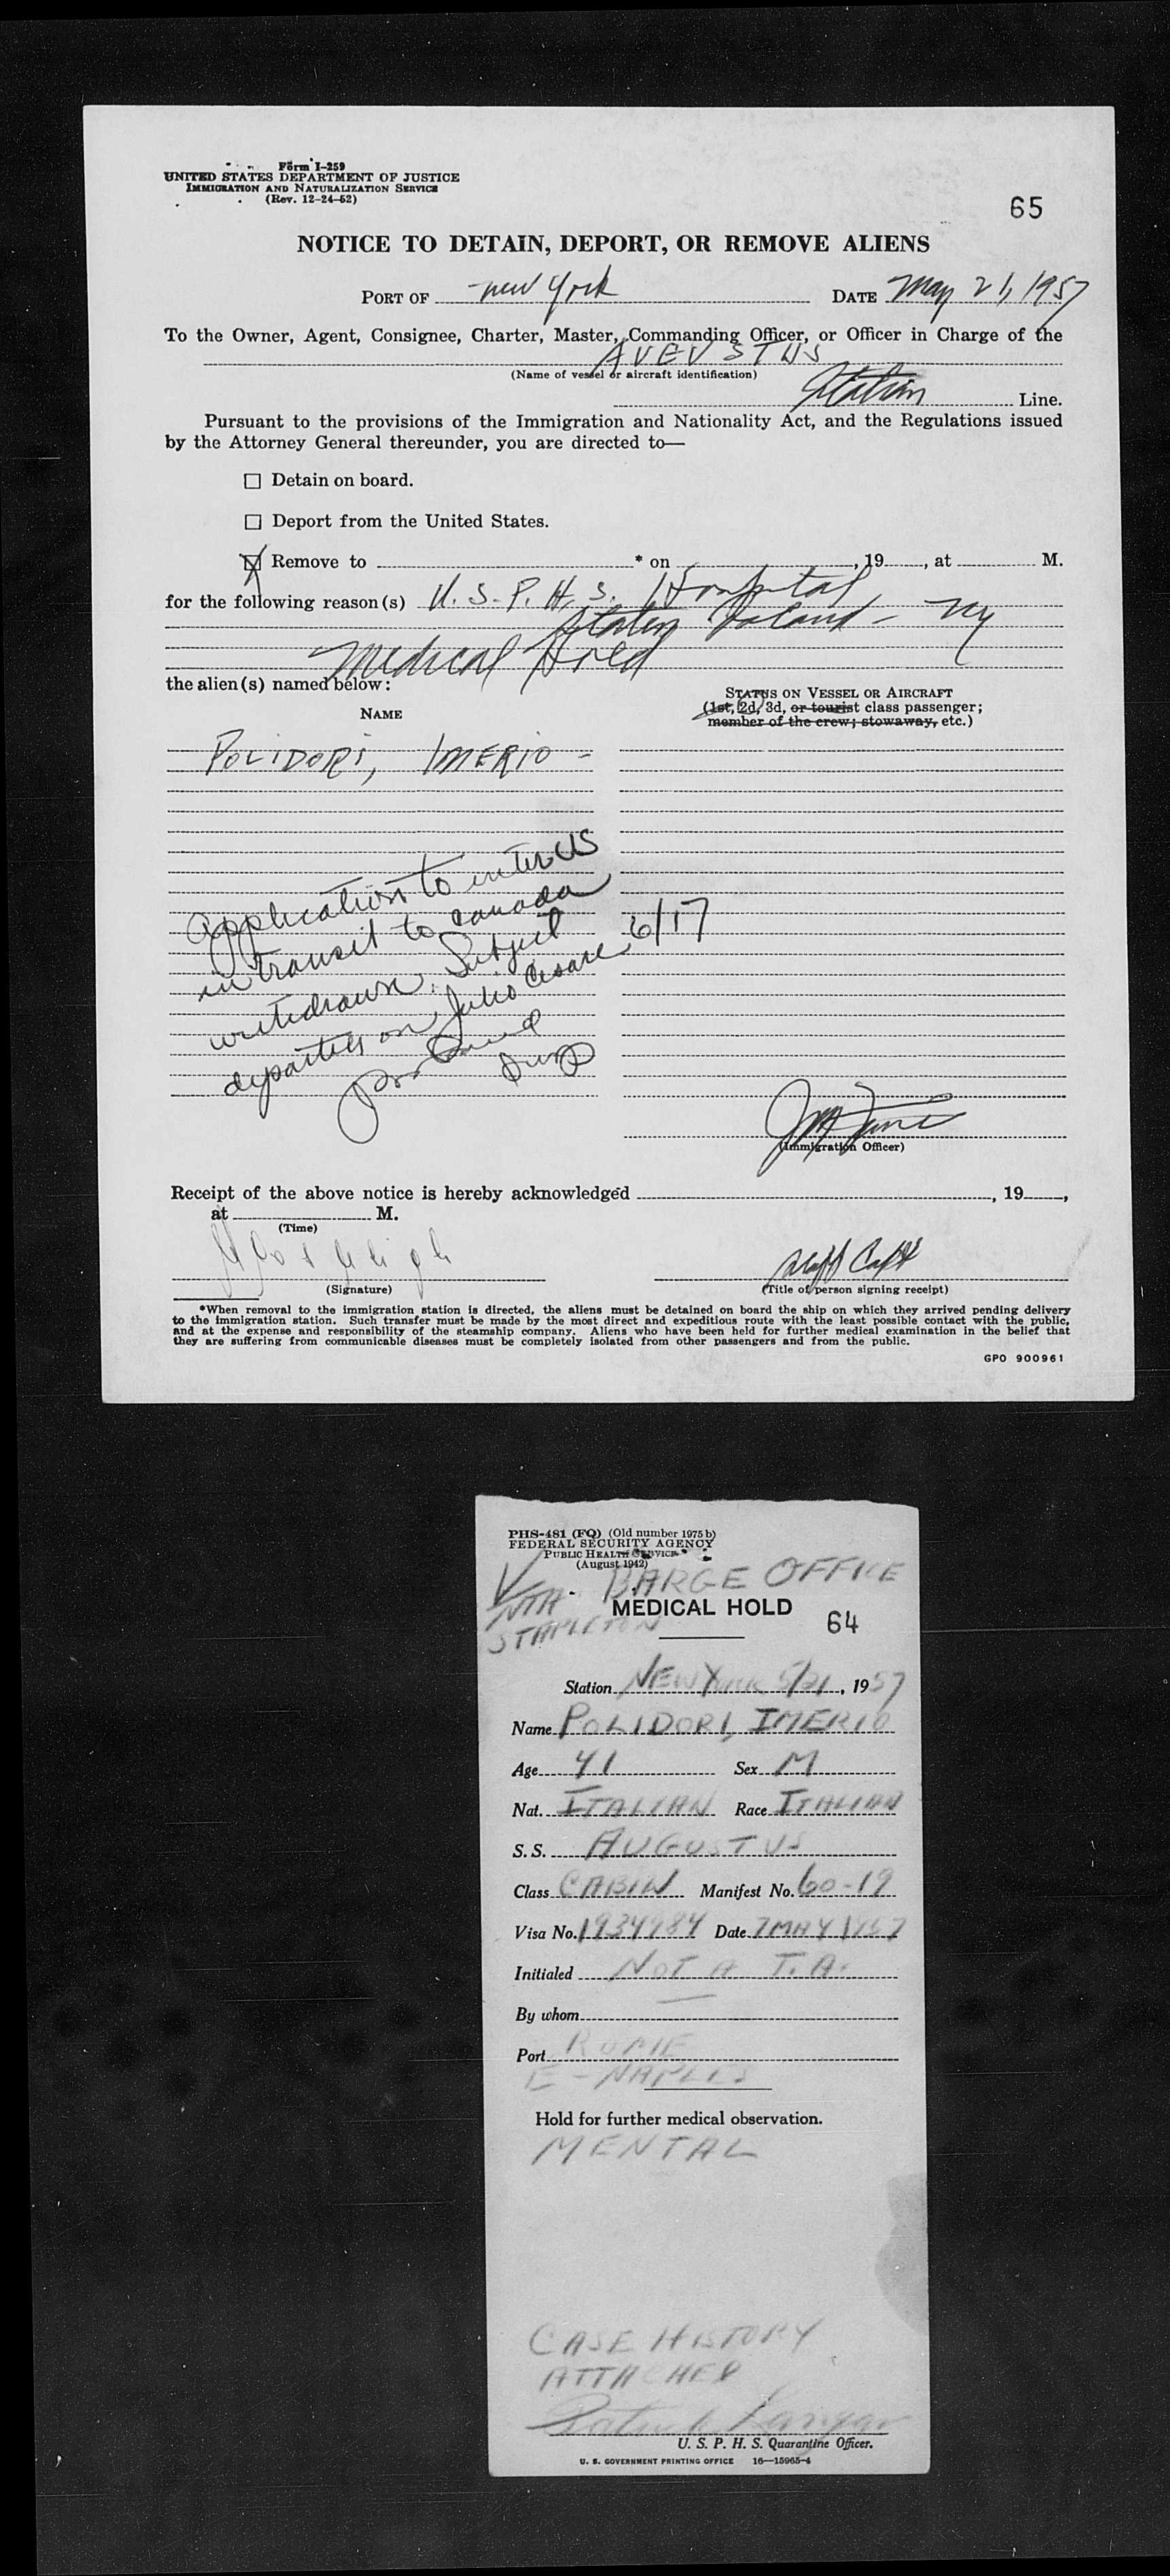 Form I-259
UNITED STATES DEPARTMENT OF JUSTICE
IMMIGRATION AND NATURALIZATION SERVICE
(Rev. 12-24-52)
65
NOTICE TO DETAIN, DEPORT, OR REMOVE ALIENS
PORT OF New York DATE May 21, 1957
To the Owner, Agent, Consignee, Charter, Master, Commanding Officer, or Officer in Charge of the
(Name of vessel or aircraft identification)
Line.
Pursuant to the provisions of the Immigration and Nationality Act, and the Regulations issued
by the Attorney General thereunder, you are directed to—
Detain on board.
Deport from the United States.
Remove to * on , 19 , at M.
for the following reason(s) U. S. P. H. S. Hospital
Staten Island - NY
Medical Hold
the alien(s) named below:
STATUS ON VESSEL OR AIRCRAFT
(1st, 2d, 3d, or tourist class passenger;
member of the crew; stowaway, etc.)
NAME
POLIDORI, IMERIO -
Application to enter US
in transit to Canada
withdrawn. Subject
departed on Julio Cesare 6/17
(Immigration Officer)
Receipt of the above notice is hereby acknowledged , 19 ,
at M.
(Time)
(Signature)
(Title of person signing receipt)
*When removal to the immigration station is directed, the aliens must be detained on board the ship on which they arrived pending delivery
to the immigration station. Such transfer must be made by the most direct and expeditious route with the least possible contact with the public,
and at the expense and responsibility of the steamship company. Aliens who have been held for further medical examination in the belief that
they are suffering from communicable diseases must be completely isolated from other passengers and from the public.
GPO 900961
PHS-481 (FQ) (Old number 1975 b)
FEDERAL SECURITY AGENCY
PUBLIC HEALTH SERVICE
(August 1942)
BARGE OFFICE
NTA
MEDICAL HOLD
STAPLETON
64
Station NEW YORK 5/21, 1957
Name POLIDORI, IMERIO
Age 41 Sex M
Nat. ITALIAN Race ITALIAN
S. S. AUGUSTUS
Class CABIN Manifest No. 60-19
Visa No. 1934984 Date 7 MAY 1957
Initialed NOT A T.A.
By whom
Port ROME
E - NAPLES
Hold for further medical observation.
MENTAL
CASE HISTORY
ATTACHED
U. S. P. H. S. Quarantine Officer.
U. S. GOVERNMENT PRINTING OFFICE 16—15965-4